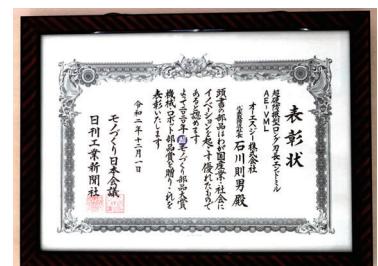 表彰状
超硬防振型ロング刃長エンドミル
AE-VML
オーエスジー株式会社
代表取締役社長 石川則男殿
頭書の部品はわが国産業・社会に
イノベーションを起こす優れたもので
あると認めます
よって二〇二〇年超モノづくり部品大賞
機械・ロボット部品賞を贈りこれを
表彰いたします
令和二年十二月一日
モノづくり日本会議
日刊工業新聞社